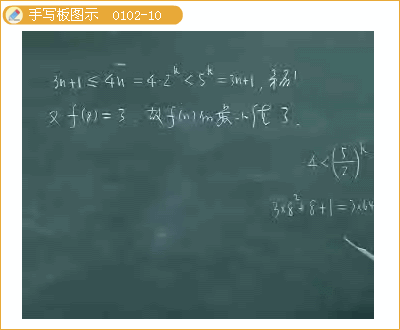 手写板图示 0102-10
3n+1 ≤ 4n = 4·2^k < 5^k = 3n+1, 矛盾!
又 f(8) = 3. 故 f(n) 的最小值 3.
4 < (5/2)^k
3×8²+8+1 = 3×64